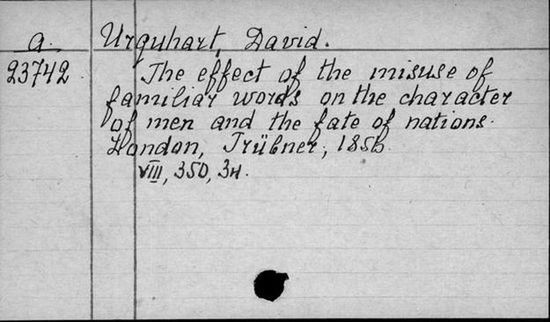 a. Urquhart, David.
23742. The effect of the misuse of
familiar words on the character
of men and the fate of nations.
London, Trübner, 1856.
VIII, 350, 34.